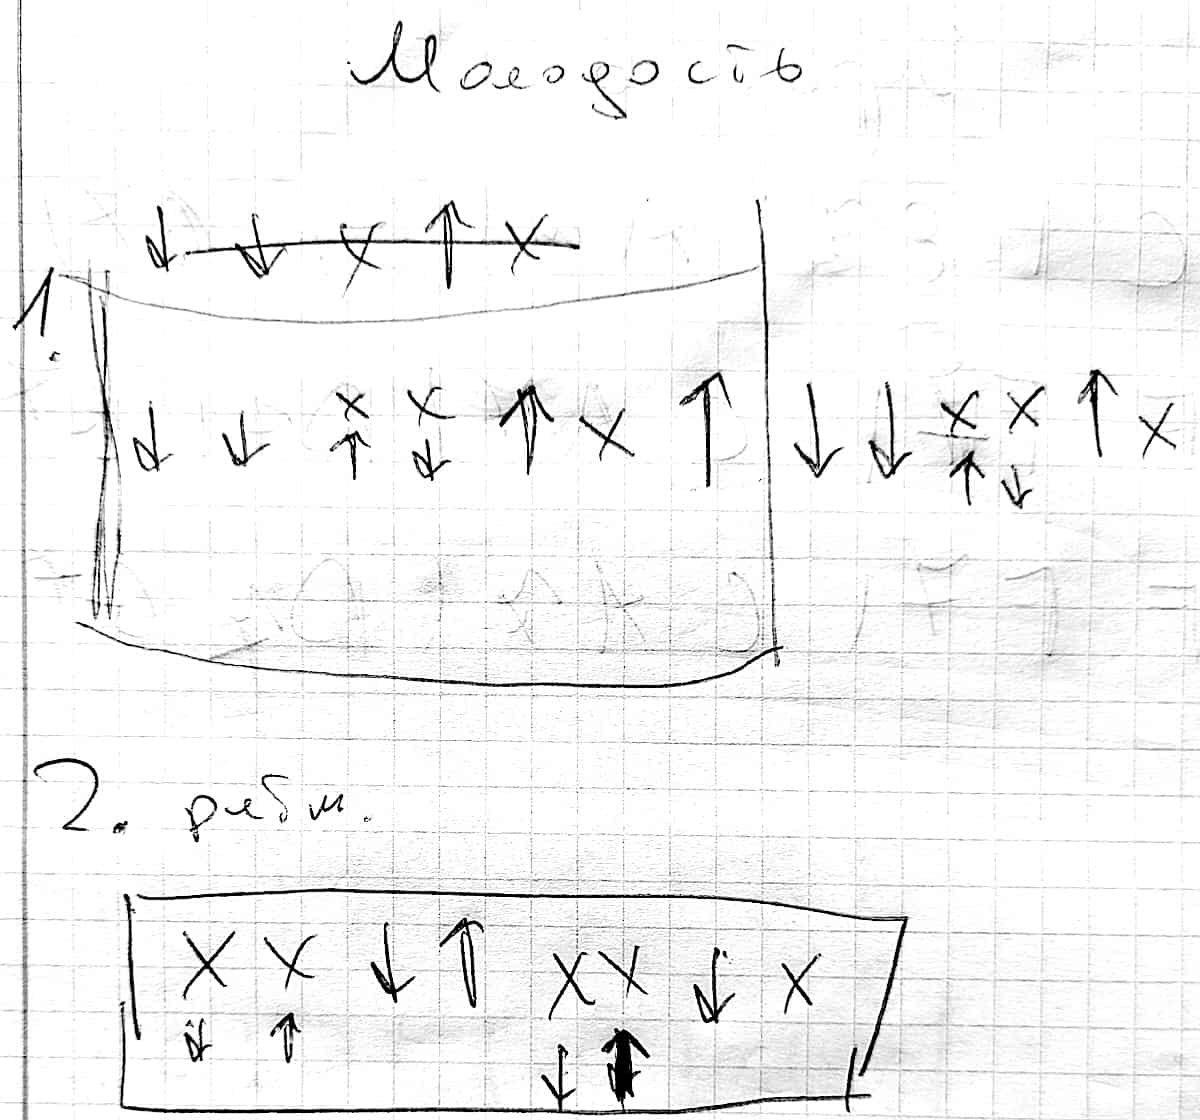 Молодость
↓ ↓ X ↑ X
1.
↓ ↓ X X ↑ X ↑ ↓ ↓ X X ↑ X
↑ ↓ ↑ ↓
2.
X X ↓ ↑ X X ↓ X
↓ ↑ ↓ ↑